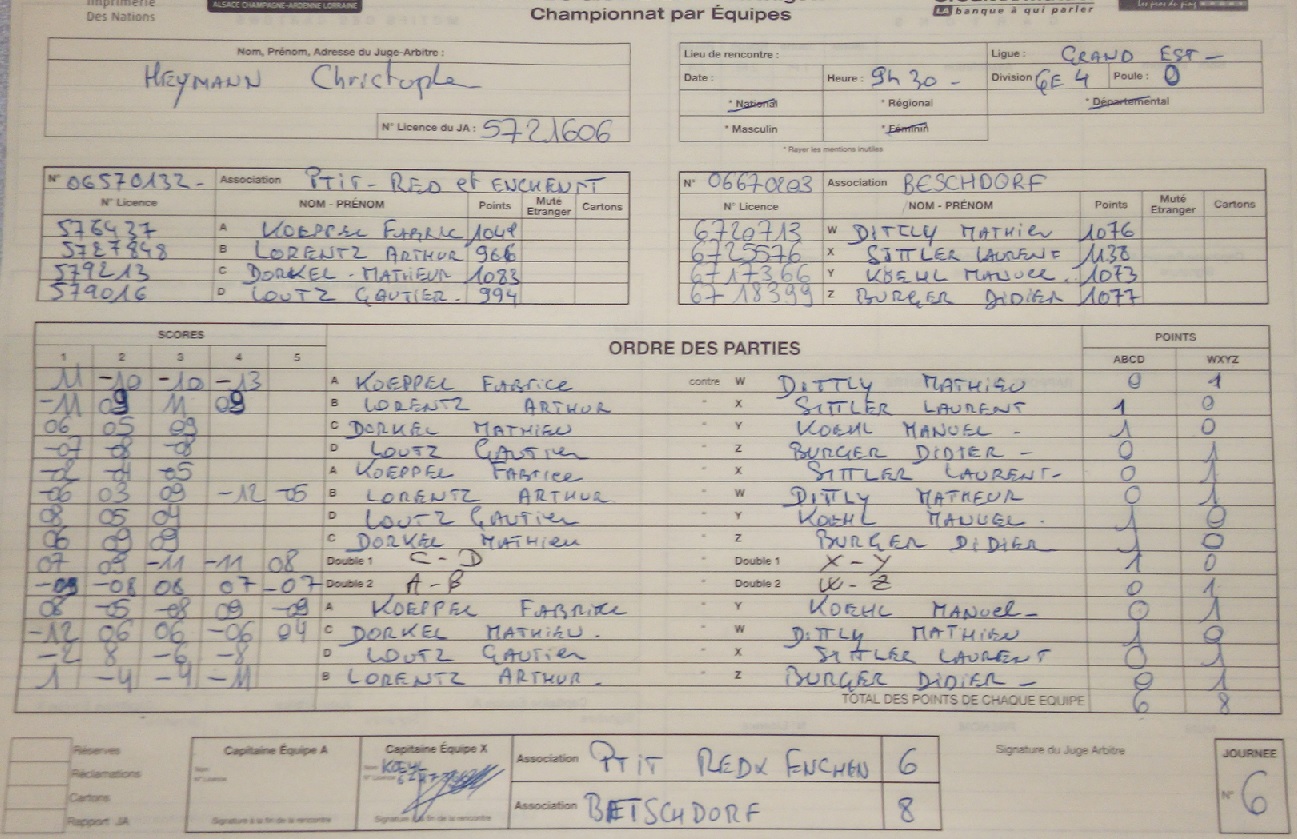 Imprimerie
Des Nations
ALSACE CHAMPAGNE-ARDENNE LORRAINE
Championnat par Équipes
LA banque à qui parler
Nom, Prénom, Adresse du Juge-Arbitre :
HEYMANN Christophe
N° Licence du JA : 5721606
Lieu de rencontre : Ligue : GRAND EST -
Date : Heure : 9h 30 - Division GE 4 Poule : 0
* National * Régional * Départemental
* Masculin * Féminin
* Rayer les mentions inutiles
N° 06570132 - Association PTIT - RED et ENCHENT
N° Licence NOM - PRÉNOM Points Muté Etranger Cartons
576437 A KOEPPEL FABRIC 1041
5727848 B LORENTZ ARTHUR 966
579213 C DORKEL - MATHIEUR 1083
579016 D LOUTZ GAUTIER . 994
N° 06670203 Association BESCHDORF
N° Licence NOM - PRÉNOM Points Muté Etranger Cartons
6720713 W DITTLY MATHIEU 1076
6725576 X SITTLER LAURENT 1138
6717366 Y KOEHL MANUEL . 1073
67 18399 Z BURGER DIDIER 1077
SCORES ORDRE DES PARTIES POINTS
1 2 3 4 5 ABCD WXYZ
11 -10 -10 -13 A KOEPPEL FABRICE contre W DITTLY MATHIEU 0 1
-11 09 11 09 B LORENTZ ARTHUR " X SITTLER LAURENT 1 0
06 05 09 C DORKEL MATHIEU " Y KOEHL MANUEL - 1 0
-07 -8 -8 D LOUTZ GAUTIER " Z BURGER DIDIER - 0 1
-2 -4 -05 A KOEPPEL FABRICE " X SITTLER LAURENT - 0 1
-06 03 09 -12 -05 B LORENTZ ARTHUR " W DITTLY MATHEUR 0 1
08 05 04 D LOUTZ GAUTIER " Y KOEHL MANUEL . 1 0
06 09 09 C DORKEL MATHIEU " Z BURGER DIDIER 1 0
07 09 -11 -11 08 Double 1 C - D " Double 1 X - Y 1 0
-09 -08 06 07 -07 Double 2 A - B " Double 2 W - Z 0 1
08 -05 -08 09 -09 A KOEPPEL FABRICE " Y KOEHL MANUEL - 0 1
-12 06 06 -06 04 C DORKEL MATHIEU . " W DITTLY MATHIEU 1 0
-2 8 -6 -8 D LOUTZ GAUTIER " X SITTLER LAURENT 0 1
1 -4 -4 -11 B LORENTZ ARTHUR . " Z BURGER DIDIER - 0 1
TOTAL DES POINTS DE CHAQUE EQUIPE 6 8
Réserves
Réclamations
Cartons
Rapport JA
Capitaine Équipe A
Nom
N° Licence
Signature à la fin de la rencontre
Capitaine Équipe X
KOEHL
Signature à la fin de la rencontre
Association PTIT REDX ENCHEN 6
Association BETSCHDORF 8
Signature du Juge Arbitre
JOURNEE
N° 6